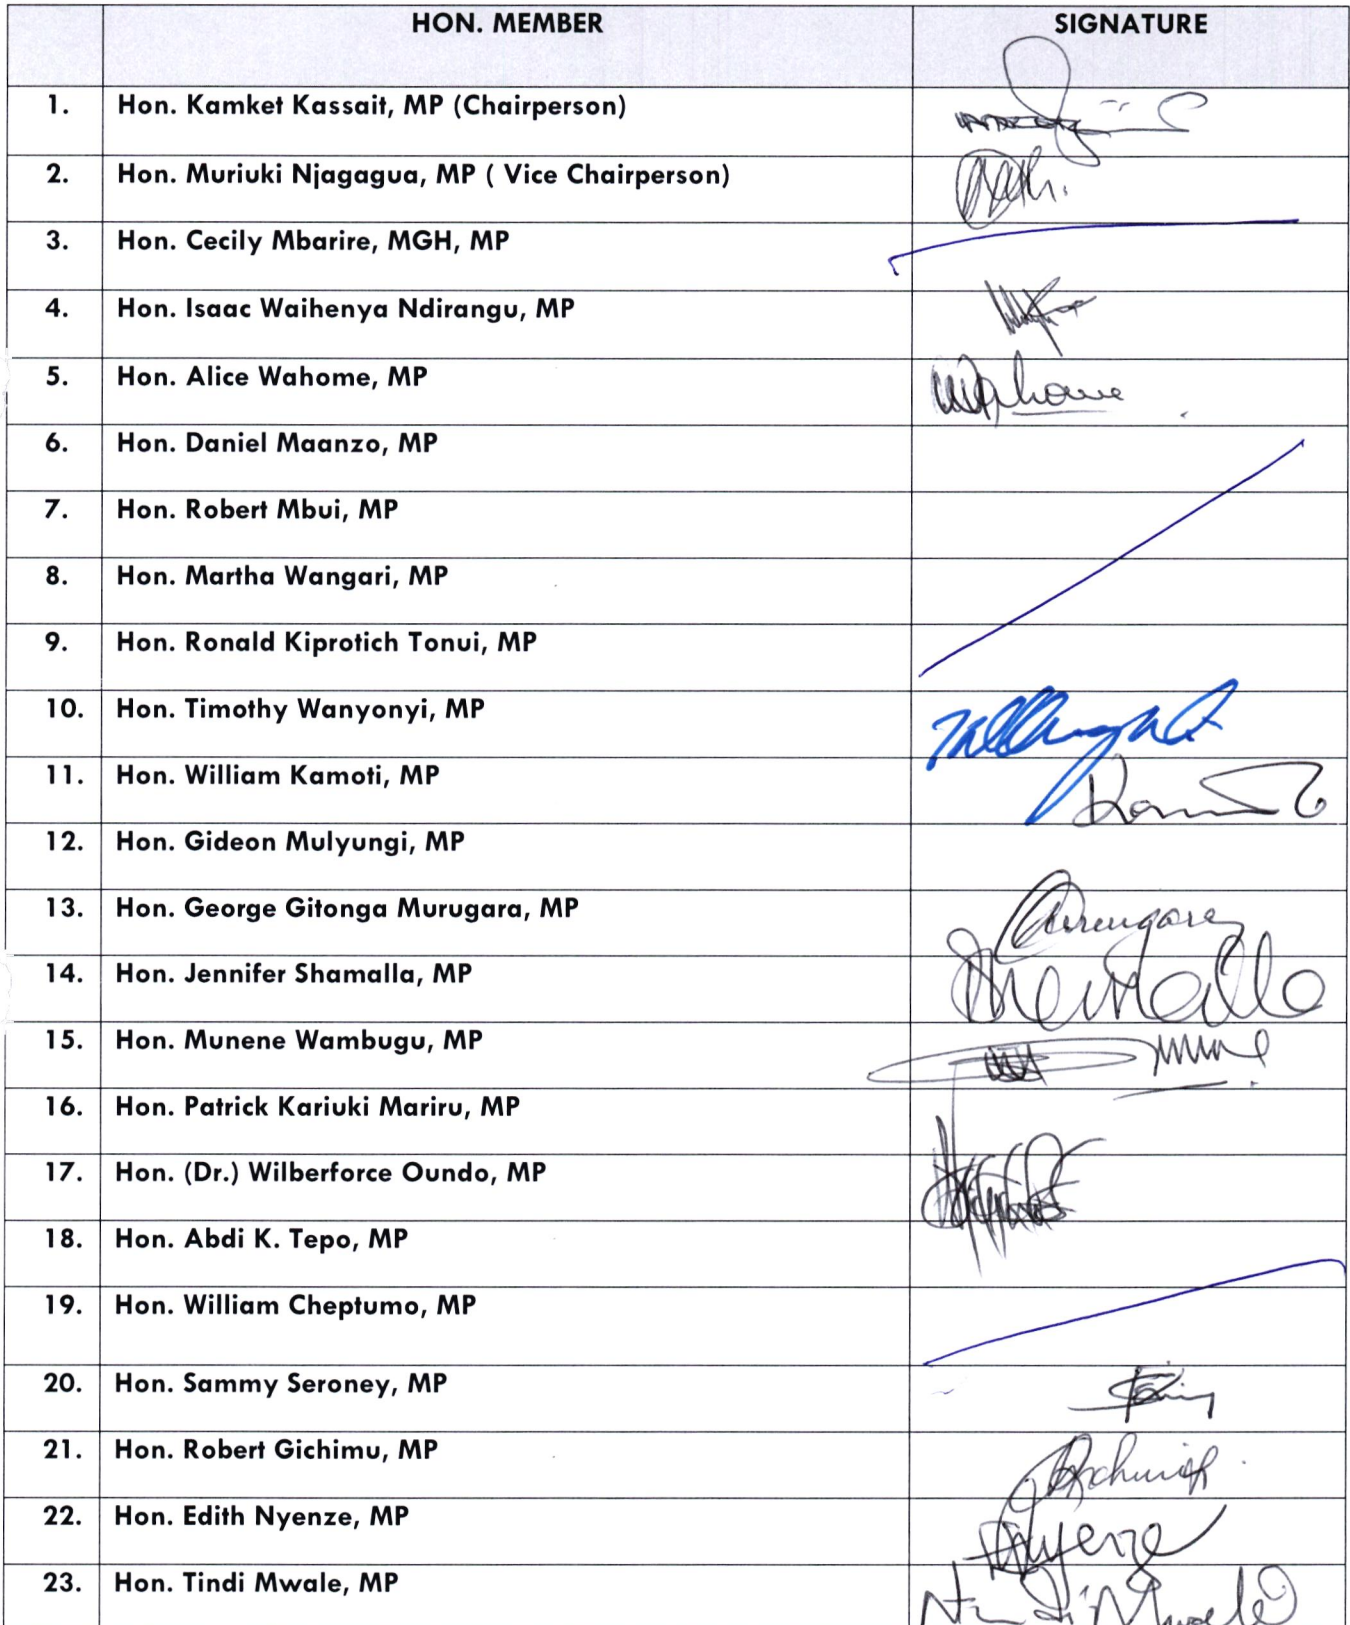 HON. MEMBER SIGNATURE
1. Hon. Kamket Kassait, MP (Chairperson)
2. Hon. Muriuki Njagagua, MP ( Vice Chairperson)
3. Hon. Cecily Mbarire, MGH, MP
4. Hon. Isaac Waihenya Ndirangu, MP
5. Hon. Alice Wahome, MP Wahome
6. Hon. Daniel Maanzo, MP
7. Hon. Robert Mbui, MP
8. Hon. Martha Wangari, MP
9. Hon. Ronald Kiprotich Tonui, MP
10. Hon. Timothy Wanyonyi, MP
11. Hon. William Kamoti, MP
12. Hon. Gideon Mulyungi, MP
13. Hon. George Gitonga Murugara, MP
14. Hon. Jennifer Shamalla, MP
15. Hon. Munene Wambugu, MP
16. Hon. Patrick Kariuki Mariru, MP
17. Hon. (Dr.) Wilberforce Oundo, MP
18. Hon. Abdi K. Tepo, MP
19. Hon. William Cheptumo, MP
20. Hon. Sammy Seroney, MP
21. Hon. Robert Gichimu, MP
22. Hon. Edith Nyenze, MP Nyenze
23. Hon. Tindi Mwale, MP